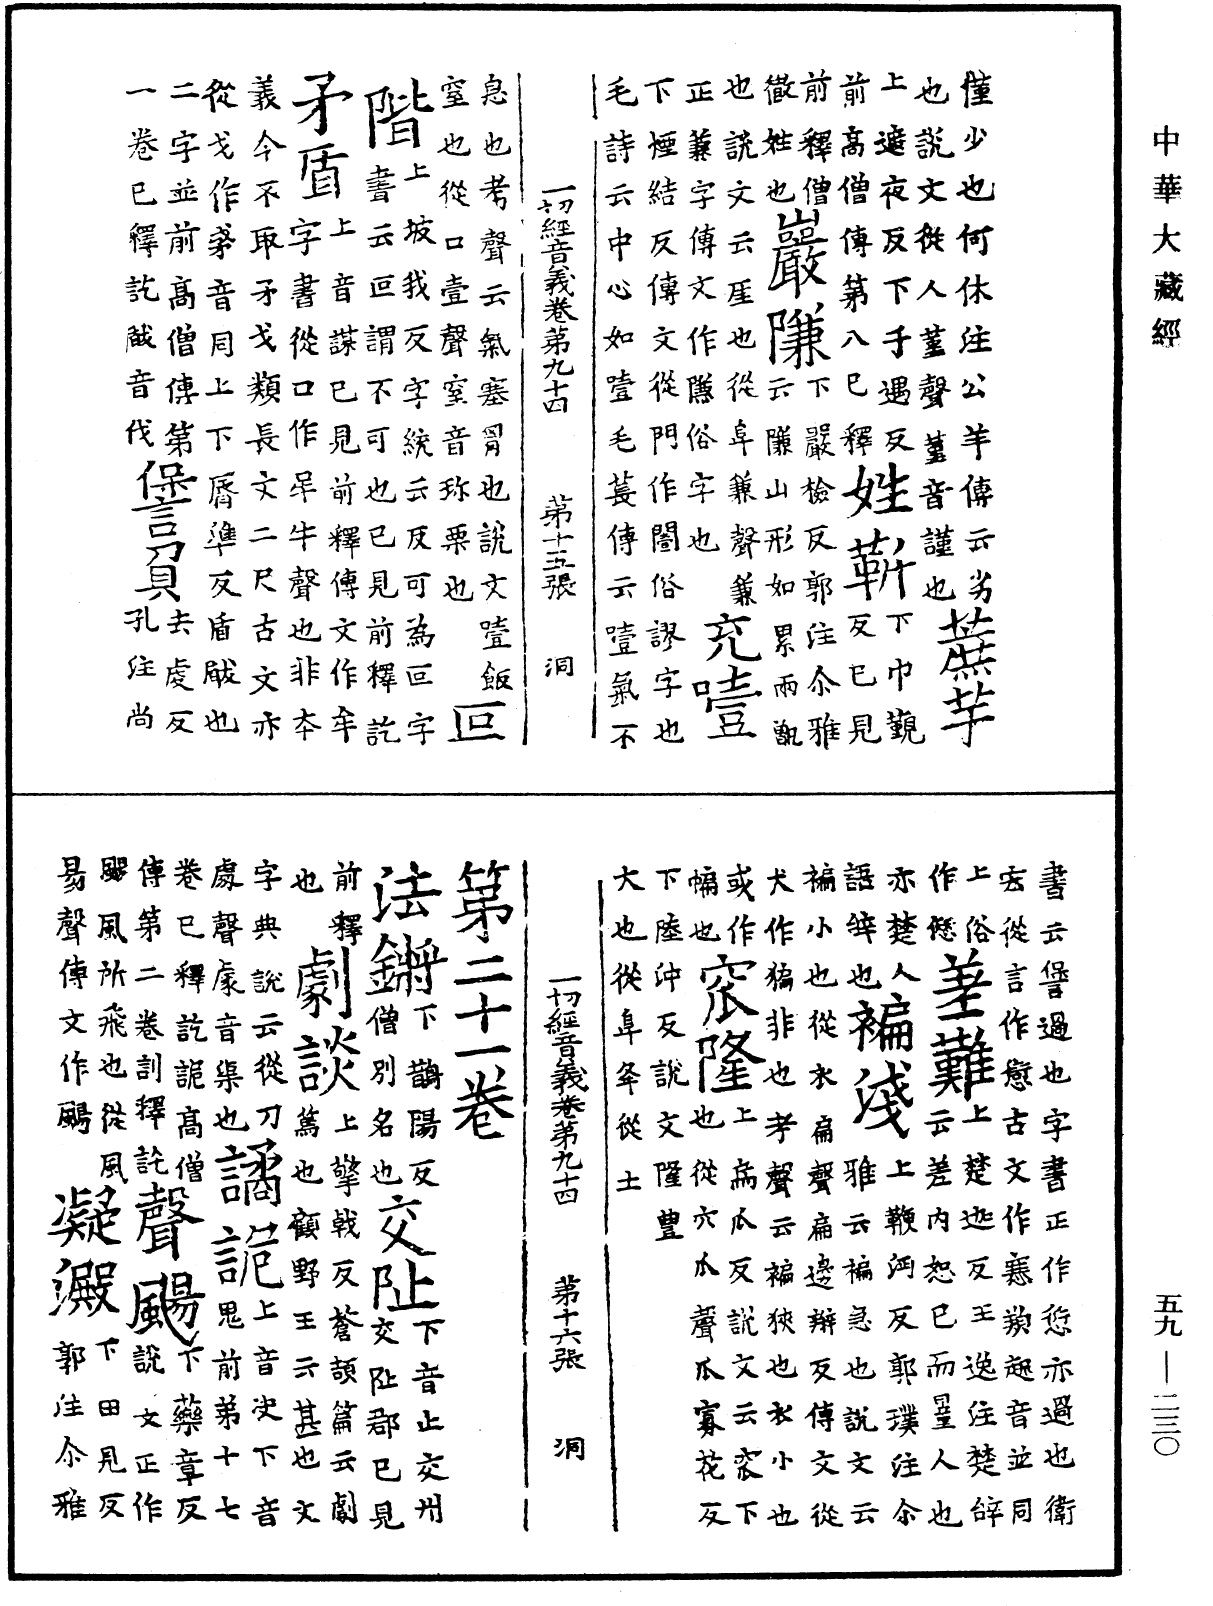 中華大藏經
僅少也何休注公羊傳云劣
也說文從人堇聲堇音謹也 蔗芋
上遮夜反下于遇反
前高僧傳第八已釋 姓蕲 下巾覲反已見
前釋僧 巖隒 下嚴檢反郭注尒雅
徹姓也 云隒山形如累兩甑
也說文云厓也從阜兼聲兼
正蒹字傳文作隒俗字也 充噎
下煙結反傳文從門作闇俗謬字也
毛詩云中心如噎毛萇傳云噎氣不
一切經音義卷第九十四 第十五張 洞
息也考聲云氣塞胷也說文噎飯
窒也從口壹聲窒音珎栗也 叵
階 上坡我反字統云反可為叵字
書云叵謂不可也已見前釋訖
矛盾 上音謀已見前釋傳文作牟
字書從口作牟牛聲也非本
義今不取矛戈類長文二尺古文亦
從戈作音同上下脣準反盾瞂也
二字並前高僧傳第
一卷已釋訖瞂音伐 㥶 去虔反
孔注尚
書云諐過也字書正作愆亦過也衛
宏從言作古文作音並同
上俗 差難 上楚迦反王逸注楚辭
作 云差内恕已而量人也
亦楚人 褊淺 上鞭沔反郭璞注尒
語辤也 雅云褊急也說文云
褊小也從衣扁聲扁邊辯反傳文從
犬作猵非也考聲云褊狹也衣小也
或作 窊隆 上烏瓜反說文云窊下
㡢也 也從穴瓜聲瓜寡花反
下陸沖反說文隆豐
大也從阜夅從土
一切經音義卷第九十四 第十六張 洞
第二十一卷
法鏘 下鵲陽反 交阯 下音止交州
僧別名也 交阯郡已見
前釋 劇談 上擎戟反蒼頡篇云劇
也 篤也顧野王云甚也文
字典說云從刀 譎詭 上音决下音
䖍聲豦音渠也 鬼前弟十七
卷已釋訖詭高僧 聲颺 下藥章反
傳第二卷訓釋訖 說文正作
颺風所飛也從風 凝澱 下田見反
昜聲傳文作颺 郭注尒雅
五九—二三〇